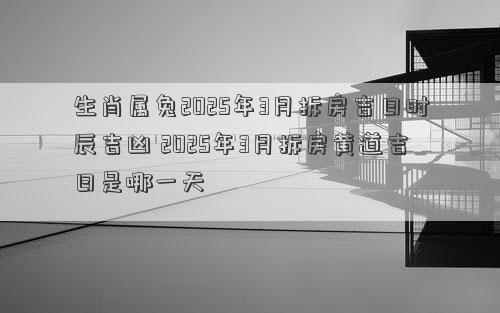 生肖属兔2025年3月拆房吉日时
辰吉凶 2025年3月拆房黄道吉
日是哪一天